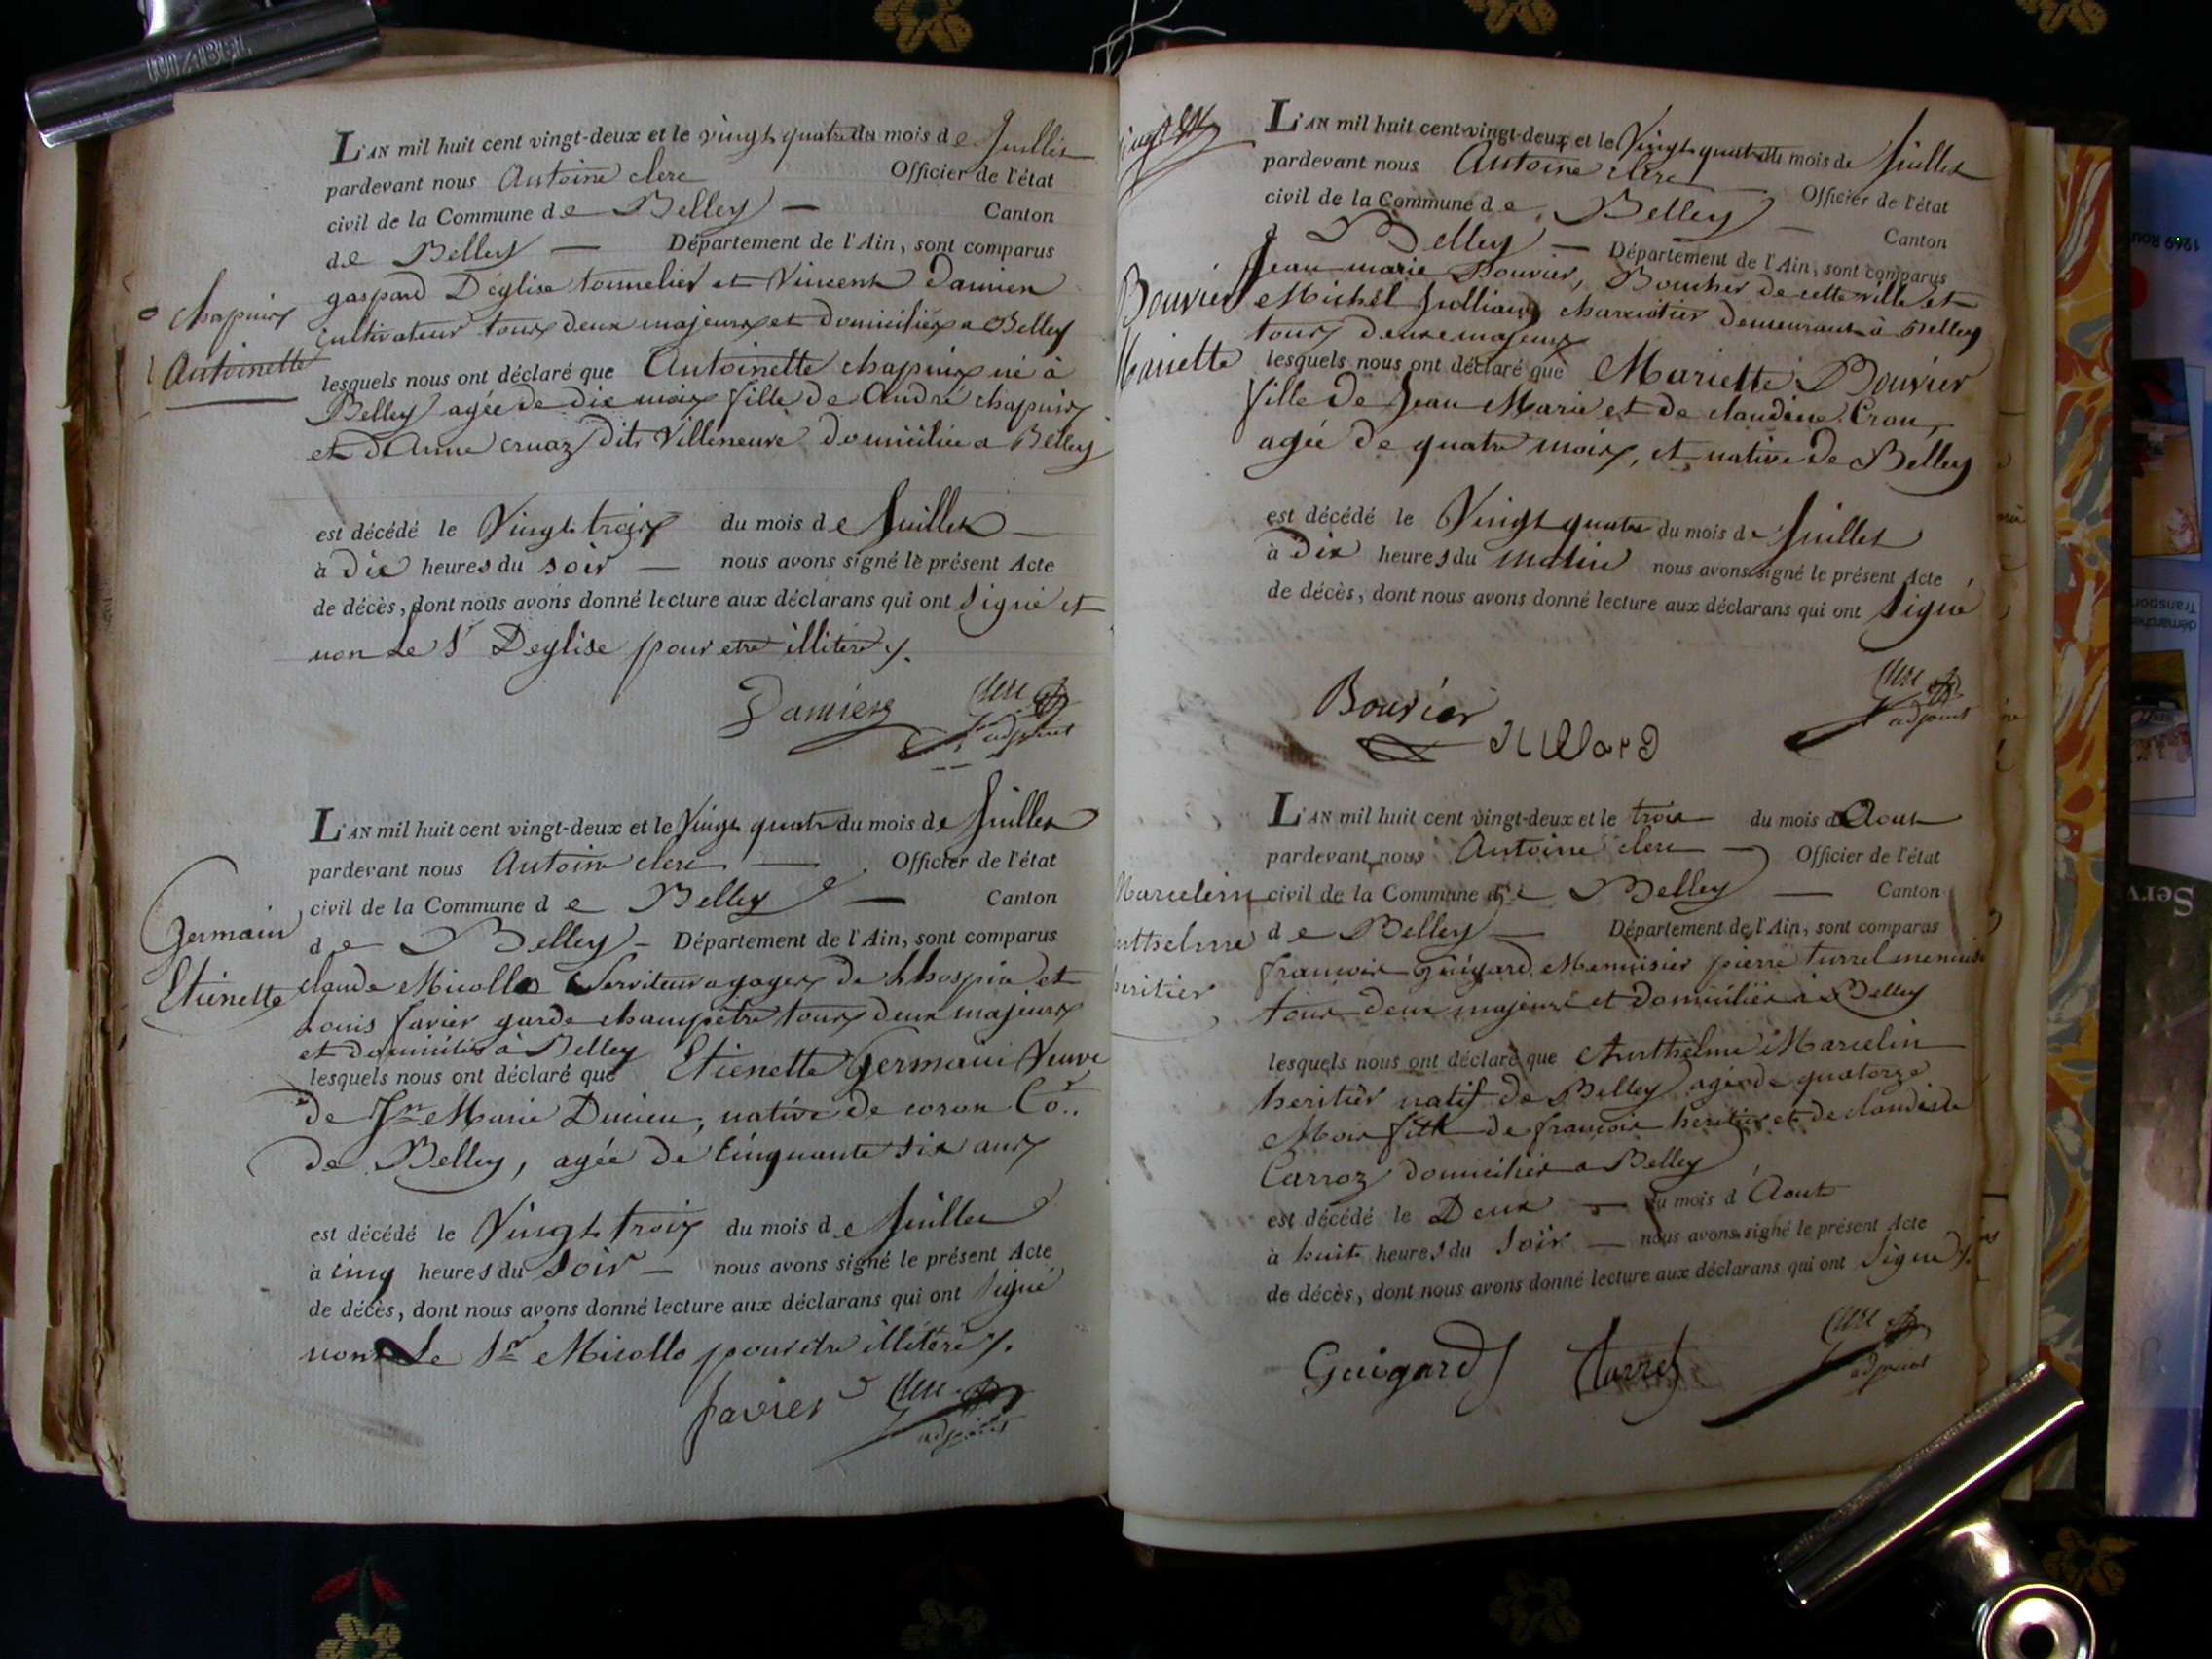 L'AN mil huit cent vingt-deux et le vingt quatre du mois de Juillet
pardevant nous Antoine clerc Officier de l'état
civil de la Commune de Belley — Canton
de Belley — Département de l'Ain, sont comparus
gaspard Déglise tonnelier et Vincent Damien
cultivateur tous deux majeurs et domiciliés a Belley
chapuis
Antoinette
lesquels nous ont déclaré que Antoinette chapuis né à
Belley agée de dix mois fille de André chapuis
et d'Anne cruaz dit Villeneuve domiciliée a Belley
est décédé le Vingt trois du mois de Juillet —
à Dix heures du soir — nous avons signé le présent Acte
de décès, dont nous avons donné lecture aux déclarans qui ont signé et
non Le Sr Deglise pour etre illiteré
Damien Clerc
adjoint
L'AN mil huit cent vingt-deux et le Vingt quatre du mois de Juillet
pardevant nous Antoine clerc — Officier de l'état
civil de la Commune de Belley — Canton
de Belley — Département de l'Ain, sont comparus
Germain
Etienette
claude Micollo Serviteur a gages de l'hospice et
Louis favier garde champêtre tous deux majeurs
et domiciliés à Belley
lesquels nous ont déclaré que Etienette Germain Veuve
de Marie native de coron Co..
de Belley, agée de Cinquante six ans
est décédé le Vingt trois du mois de Juillet
à cinq heures du Soir — nous avons signé le présent Acte
de décès, dont nous avons donné lecture aux déclarans qui ont signé
non Le Sr Micollo pour etre illiteré
favier Clerc
adjoint
L'AN mil huit cent vingt-deux et le Vingt quatre du mois de Juillet
pardevant nous Antoine clerc Officier de l'état
civil de la Commune de Belley — Canton
d Belley — Département de l'Ain, sont comparus
Bouvier
Mariette
Jean marie Bouvier, Boucher de cette ville et
Michel Julliard charcutier demeurant à Belley
tous deux majeurs
lesquels nous ont déclaré que Mariette Bouvier
fille de Jean Marie et de claudine Cron,
agée de quatre mois, et native de Belley
est décédé le Vingt quatre du mois de Juillet
à Dix heures du matin nous avons signé le présent Acte
de décès, dont nous avons donné lecture aux déclarans qui ont signé
Bouvier Clerc
Jullard adjoint
L'AN mil huit cent vingt-deux et le trois du mois d Aout
pardevant nous Antoine clerc — Officier de l'état
civil de la Commune de Belley — Canton
de Belley — Département de l'Ain, sont comparus
Marcelin
nthelme
heritier
francois Guigard Menuisier pierre turrel menuisi
tous deux majeurs et domiciliés à Belley
lesquels nous ont déclaré que Anthelme Marcelin
heritier natif de Belley agé de quatorze
Mois fils de francois heritier et de
Carroz domiciliés a Belley
est décédé le Deux — du mois d'Aout
à huit heures du Soir — nous avons signé le présent Acte
de décès, dont nous avons donné lecture aux déclarans qui ont signé
Guigard turrel Clerc
adjoint